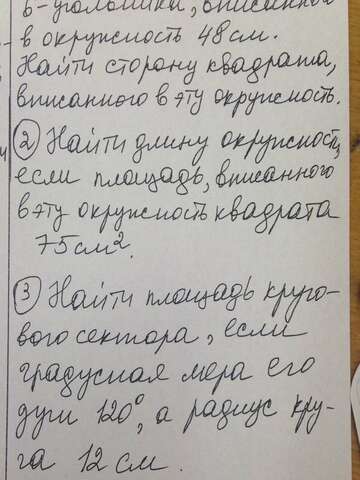 6-угольника, вписанного
в окружность 48 см.
Найти сторону квадрата,
вписанного в эту окружность.
② Найти длину окружности,
если площадь, вписанного
в эту окружность квадрата
75 см².
③ Найти площадь круго-
вого сектора, если
градусная мера его
дуги 120°, а радиус кру-
га 12 см.